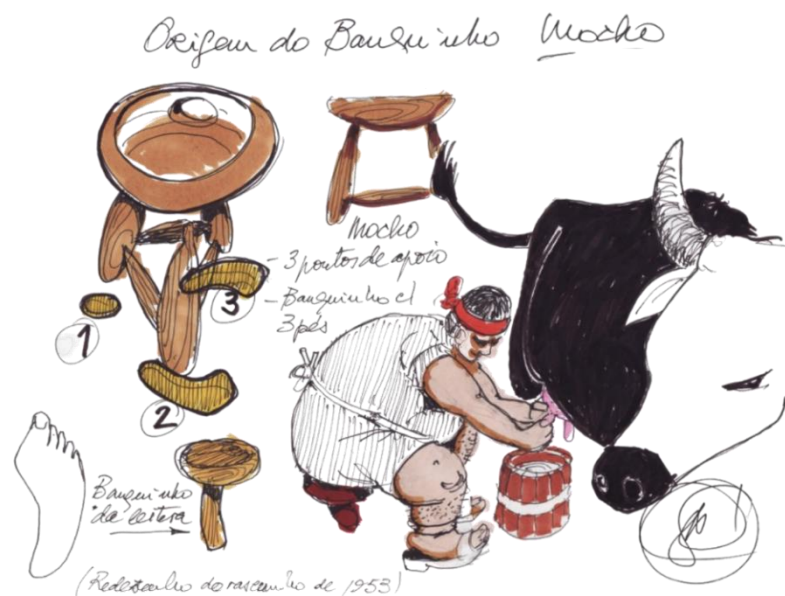 Origem do Banquinho Mocho
Mocho
- 3 pontos de apoio
- Banquinho c/
3 pés
1
2
3
Banquinho
da leitera
(Redesenho do rascunho de 1953)